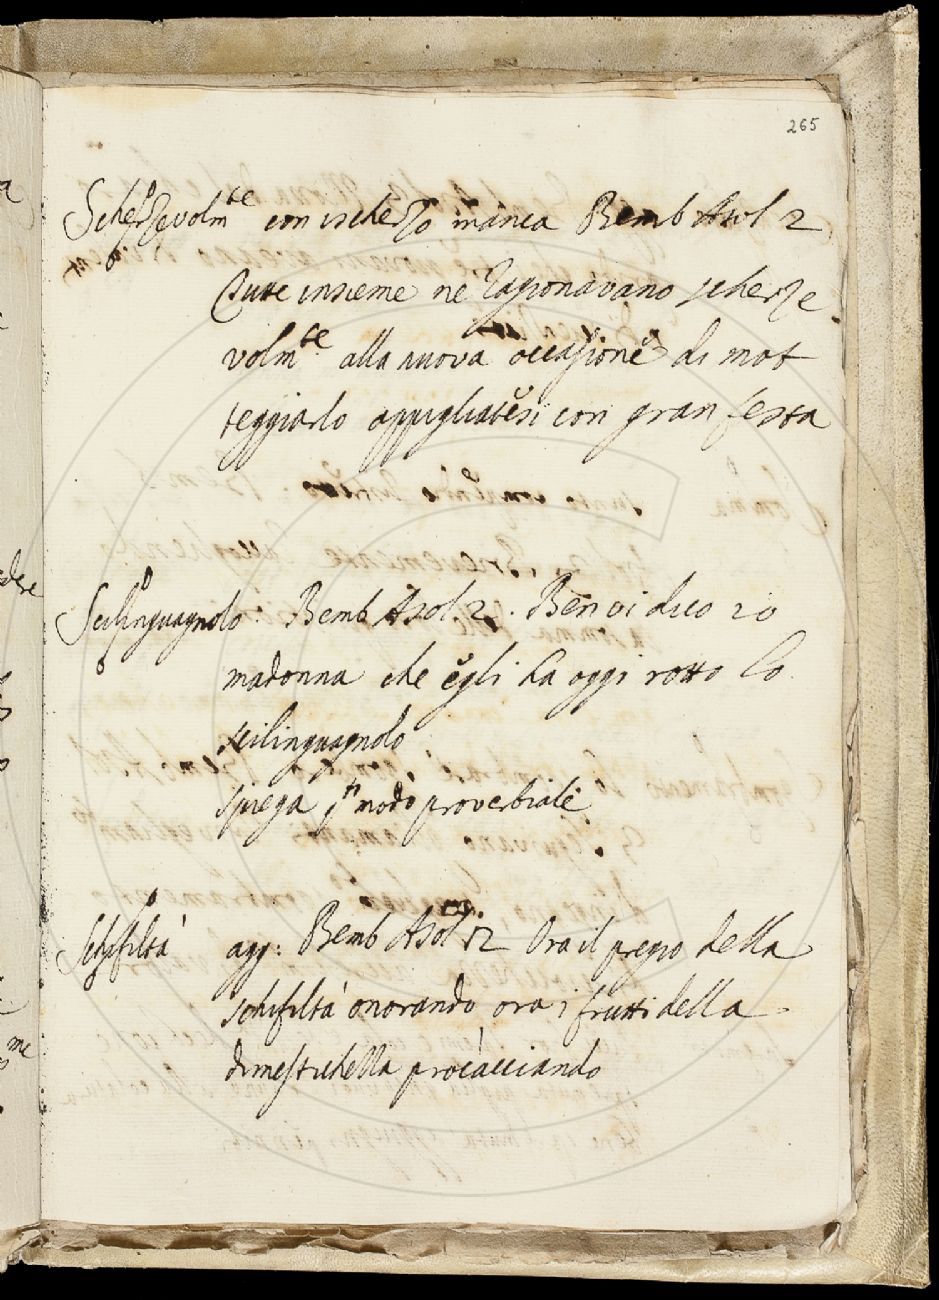 265
Scherzevolm.te con ischerzo manca Bemb Asol 2
Tutte insieme ne ragionavano scherze
volm.te alla nuova occasione di mot
teggiarlo appigliatesi con gran festa
Scilinguagnolo. Bemb Asol 2. Ben vi dico io
madonna che egli ha oggi rotto lo
scilinguagnolo
spiega modo proverbiale
Schifiltà agg: Bemb Asol 2 Ora il pregio della
schifiltà onorando ora i frutti della
dimestichella procacciando